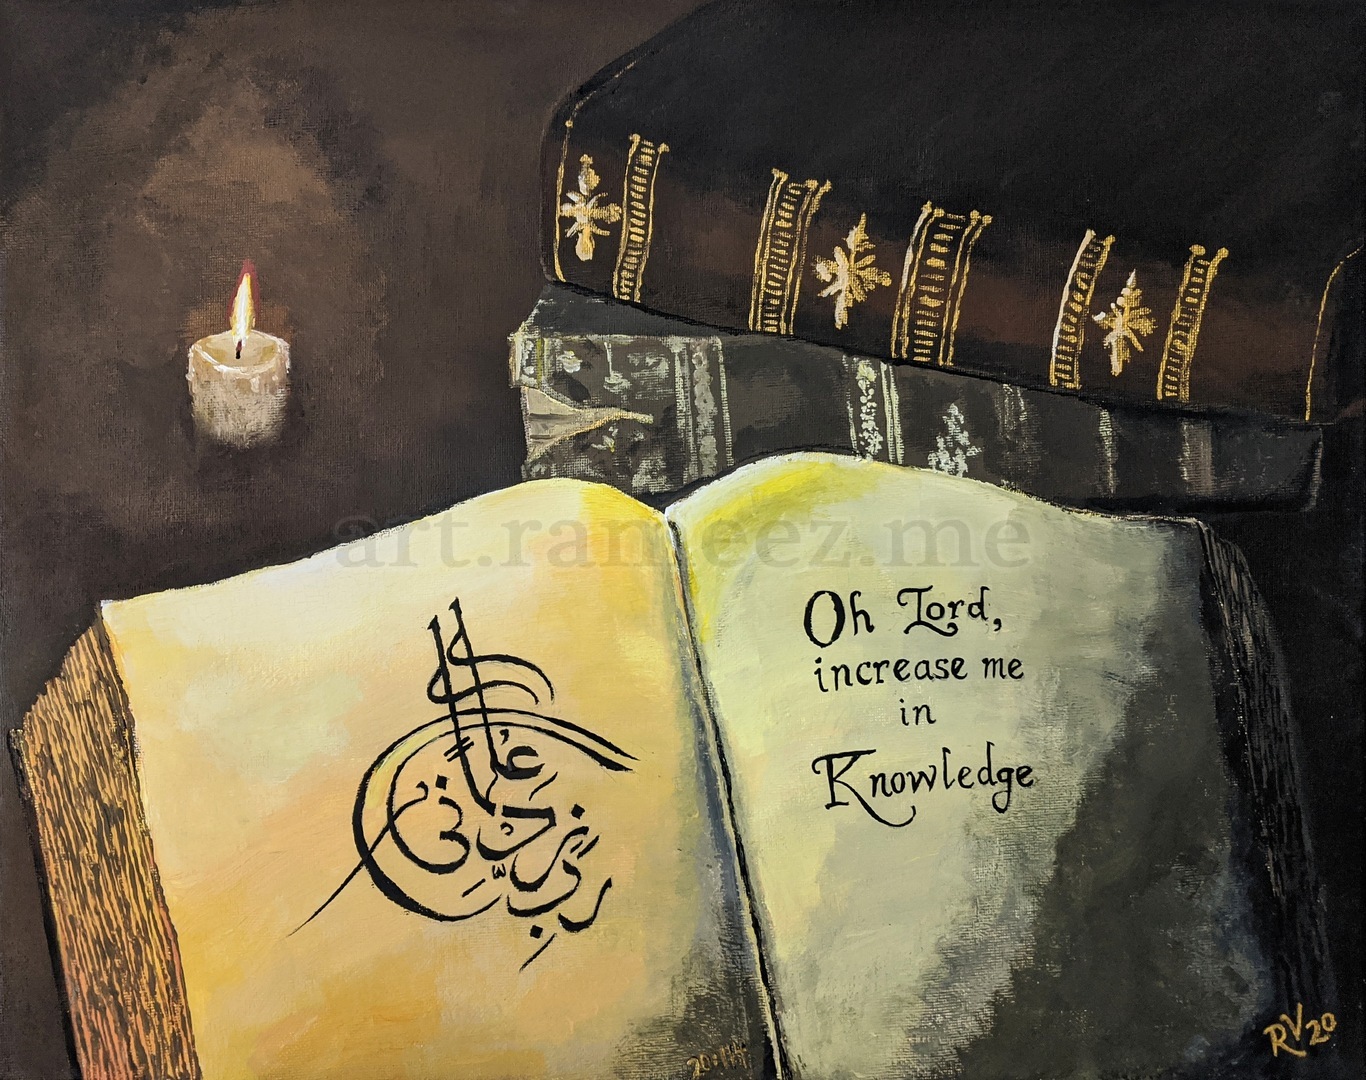 art.rameez.me
رب زدني علما
20:114
Oh Lord,
increase me
in
Knowledge
RV20